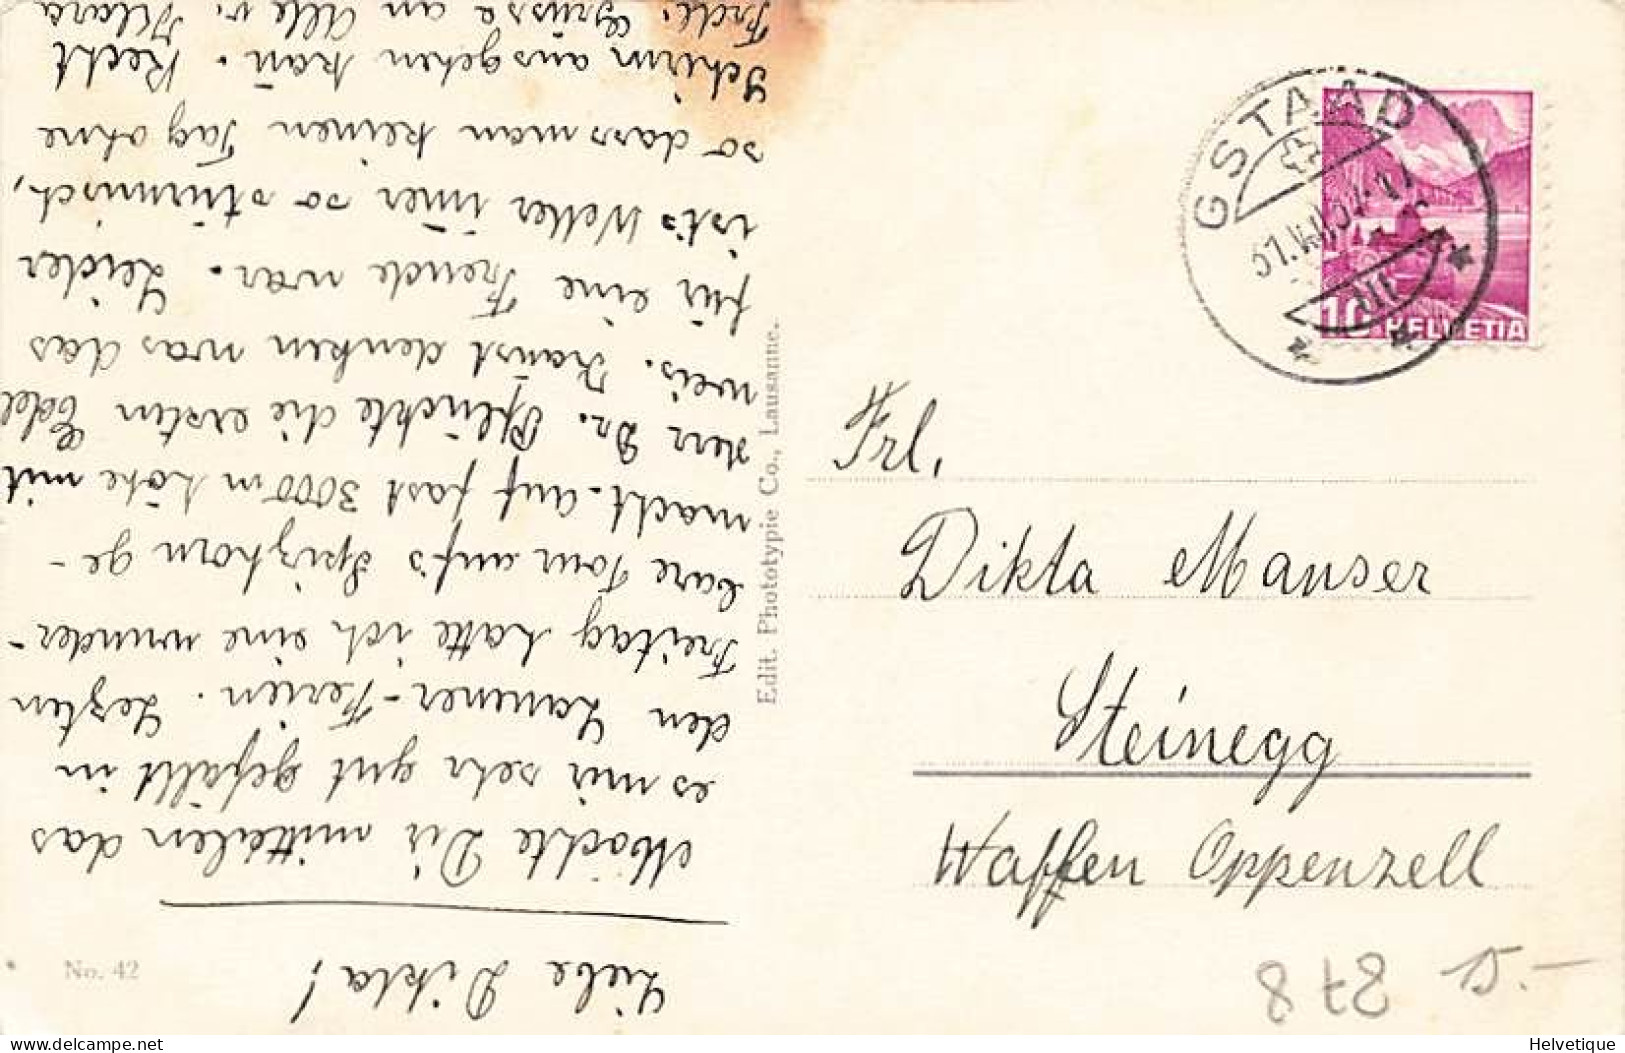 Liebe Dikta!
Möchte Dir mitteilen das
es mir sehr gut gefällt in
den Lauener-Ferien. Lezten
Freitag hatte ich eine wunder-
bare Tour auf's Spizhorn ge-
macht. auf fast 3000 m höhe mit
Herr Dr. Pflückte die ersten Edel
weis. Kañst denken was das
für eine Freude war. Leider
ist's Wetter im̃er so stürmisch,
so dass man keinen Tag ohne
Schirm ausgehen kañ. Recht
Frdl. Grüsse an Alle v. Klara
No. 42
Edit. Phototypie Co., Lausanne.
GSTAAD
10 HELVETIA
Frl.
Dikta Manser
Steinegg
Waffen Oppenzell
878
15.-
delcampe.net
Helvetique